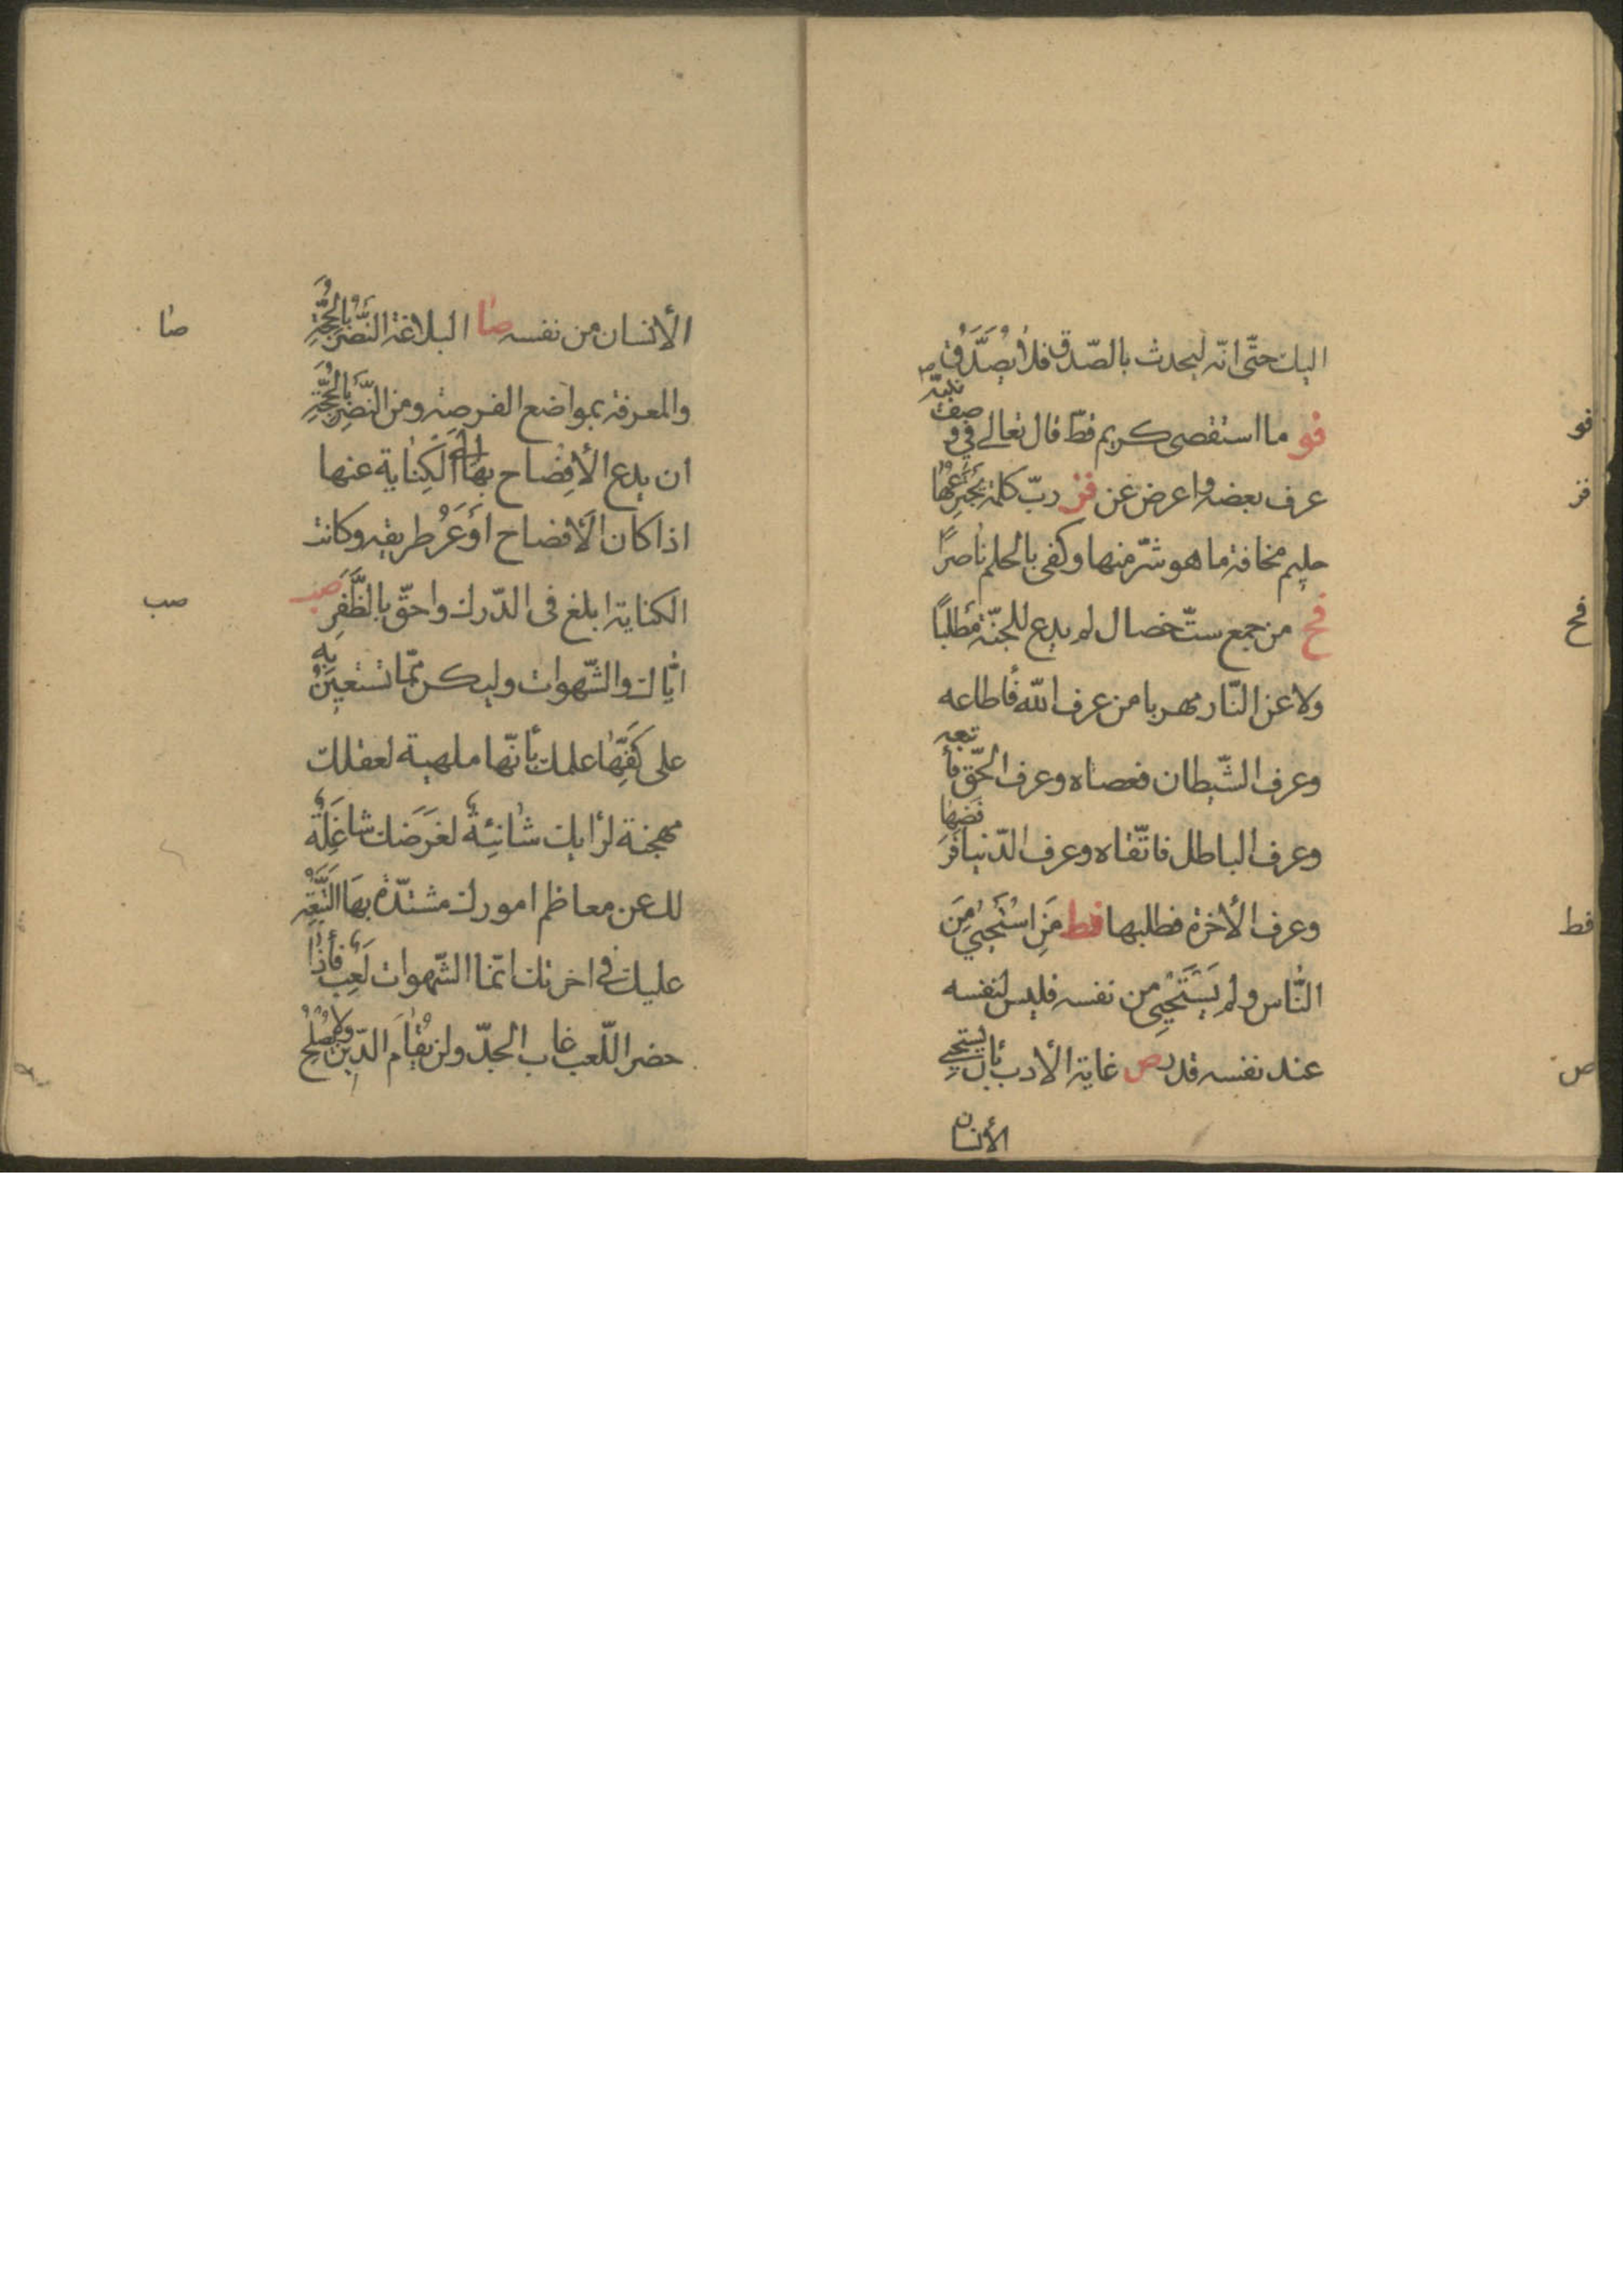 اليك حتّى انّه ليحدث بالصّدق فلا يُصَدَّقُ
فو ما استقصى كريم قطّ قال تعالى في وصف نبيّه
عرف بعضه واعرض عن فز ربّ كلمة يَجْتَرِعُهٰا
حليم مخافة ما هو شرّ منها وكفى بالحلم ناصرًا
فح من جمع ستّ خصال لم يدع للجنّة مَطْلَبًا
ولا عن النّار مهربا من عرف الله فأطاعه
وعرف الشّيطان فعصاه وعرف الحقّ فأتبعه
وعرف الباطل فاتّقاه وعرف الدّنيا فَرَفَضَهٰا
وعرف الأخرة فطلبها فط مَنِ اسْتَحْيٰي مِنَ
النّاس ولم يَسْتَحْيِي من نفسه فليس لنفسه
عند نفسه قدر ص غاية الأدب بأن يستحيي
الأنسان
فو
فز
فح
فط
ص
الأنسان من نفسه صا البلاغة النَّصْرُ بِالْحُجَّةِ
والمعرفة بمواضع الفرصة ومن النَّصْرِ بِالْحُجَّةِ
ان يدع الأفضاح بِهٰا الى الْكِنٰاية عنها
اذا كان الأفضاح أَوْعَرُ طريقه وكانت
الكناية ابلغ فى الدّرك واحقّ بِالظَّفَرِ صب
ايّاك والشّهوات وليكن ممّا تستعينُ بِه
على كَفِّهٰا علمك بأنّها ملهية لعقلك
مهجنة لرأيك شانِئِةٌ لغَرَضَك شاغِلَةٌ
لك عن معاظم امورك مشتدّة بِهَا التَّبِعَةِ
عليك في اخرتك انّما الشّهوات لَعِبٌ فأذا
حضر اللّعب غاب الجدّ ولن يُقٰامَ الدّين ولا يُصْلَحُ
صا
صب